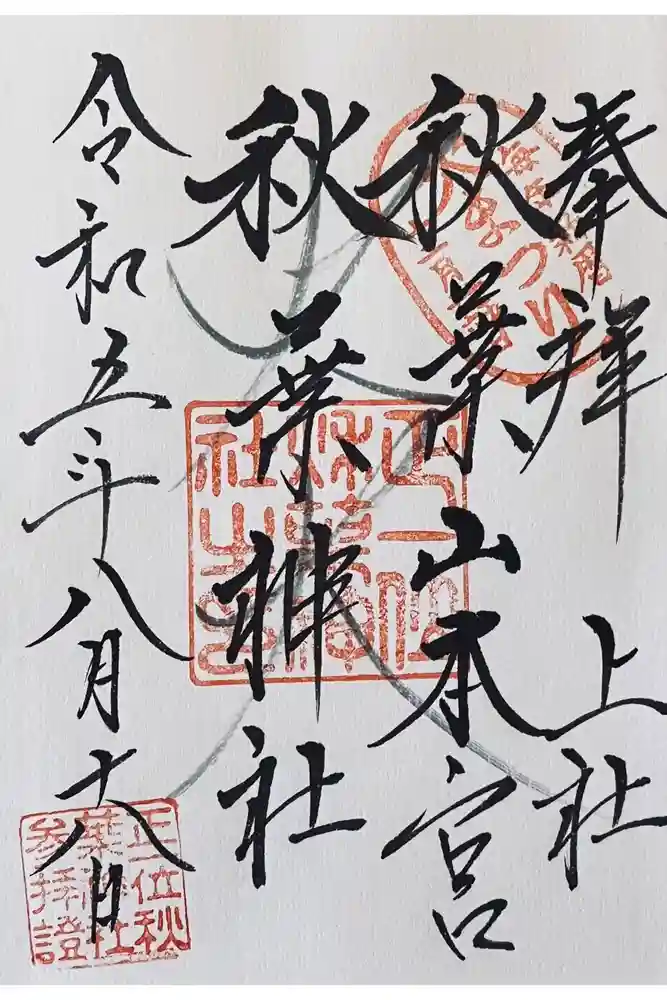 奉拝　上社
秋葉山本宮
秋葉神社
令和五年八月十八日
正一位
秋葉神
社之
正一位秋
葉神社
参拝證